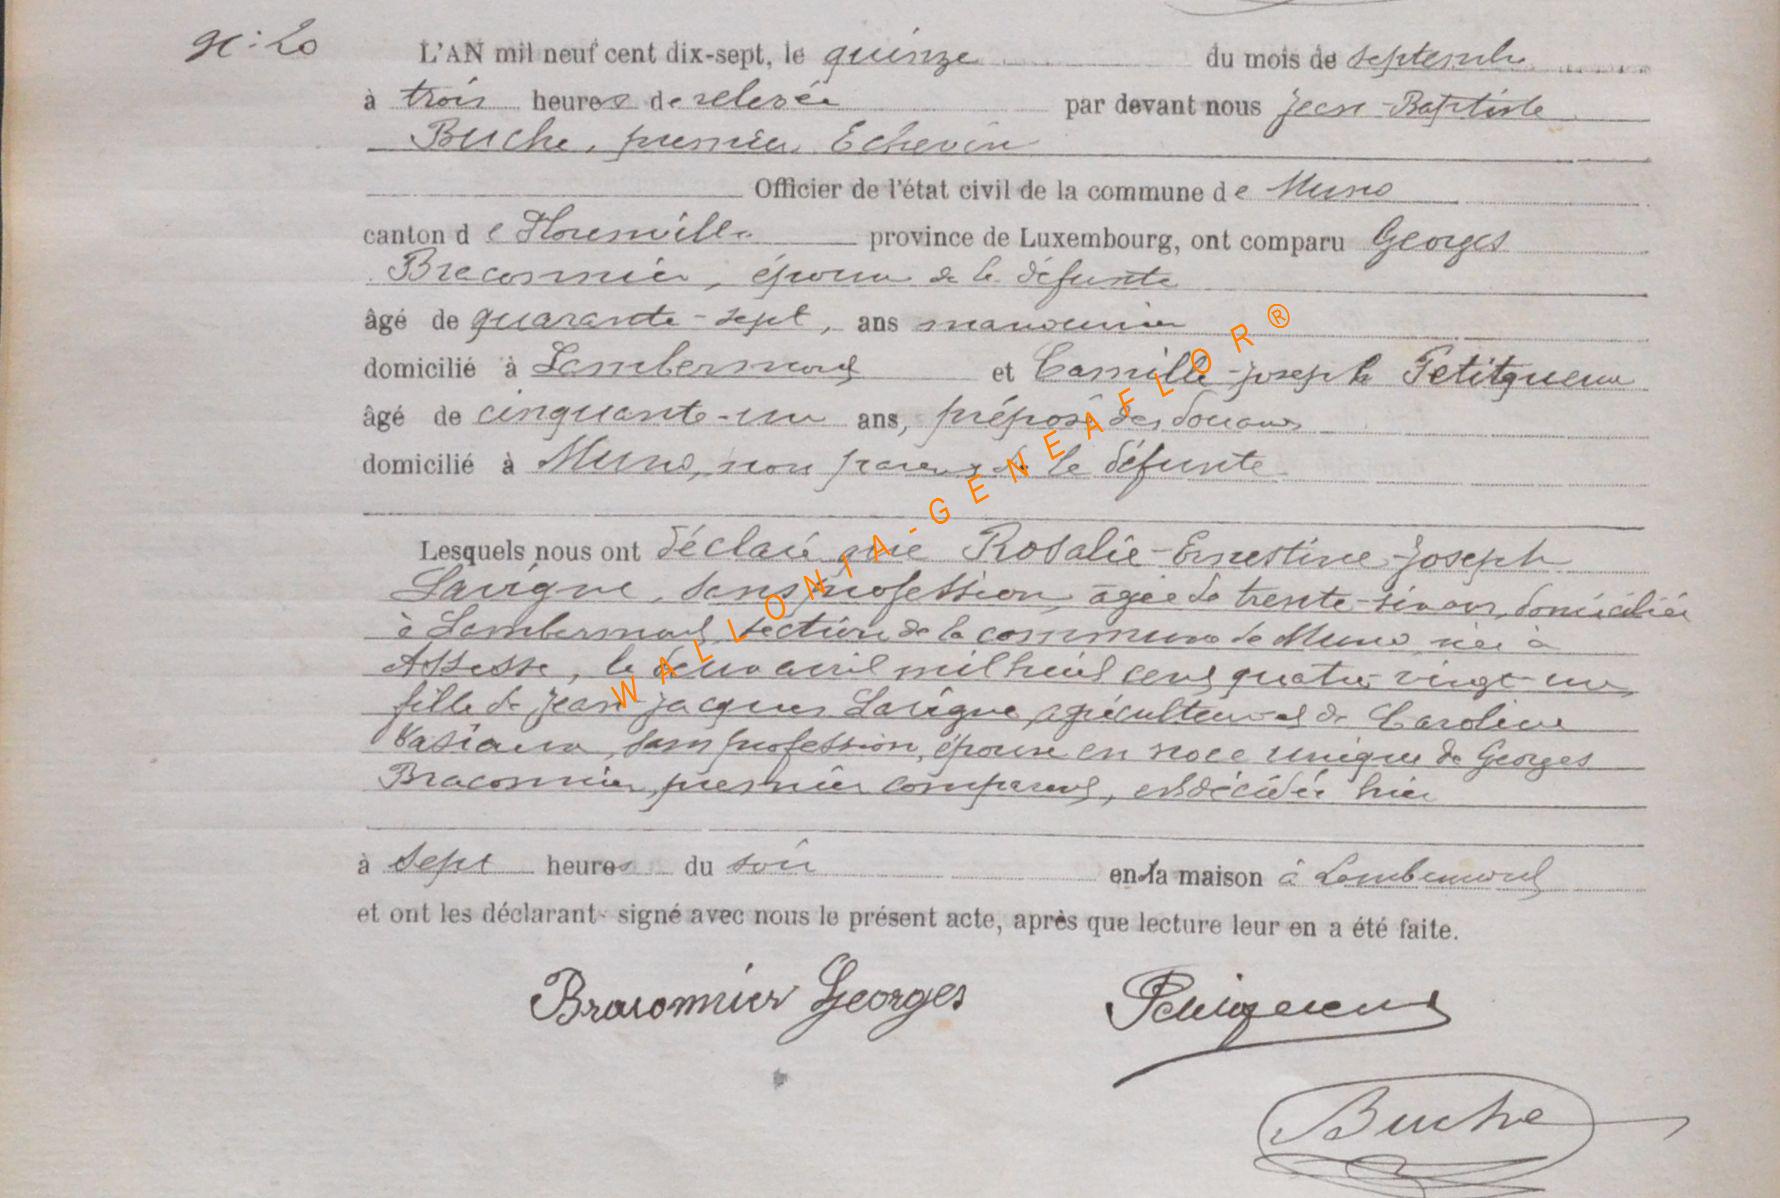 N: 20
L'AN mil neuf cent dix-sept, le quinze du mois de septembre
à trois heures de relevée par devant nous Jean-Baptiste
Buche, premier Echevin
Officier de l'état civil de la commune de Muno
canton de Florenville province de Luxembourg, ont comparu Georges
Braconnier, époux de la défunte
âgé de quarante-sept, ans manouvrier
domicilié à Lambermont et Camille-Joseph Petitqueux
âgé de cinquante-un ans, préposé des douanes
domicilié à Muno, non parent de la défunte
Lesquels nous ont déclaré que Rosalie-Ernestine-Joseph
Lavigne, sans profession, âgée de trente-six ans, domiciliée
à Lambermont, section de la commune de Muno, née à
Assesse, le deux avril mil huit cent quatre vingt-un,
fille de Jean-Jacques Lavigne, agriculteur et de Caroline
sans profession, épouse en noce unique de Georges
Braconnier, premier comparant, est décédée hier
à sept heures du soir en la maison à Lambermont
et ont les déclarant signé avec nous le présent acte, après que lecture leur en a été faite.
Braconnier Georges
Buche
WALLONIA-GENEAFLOR®